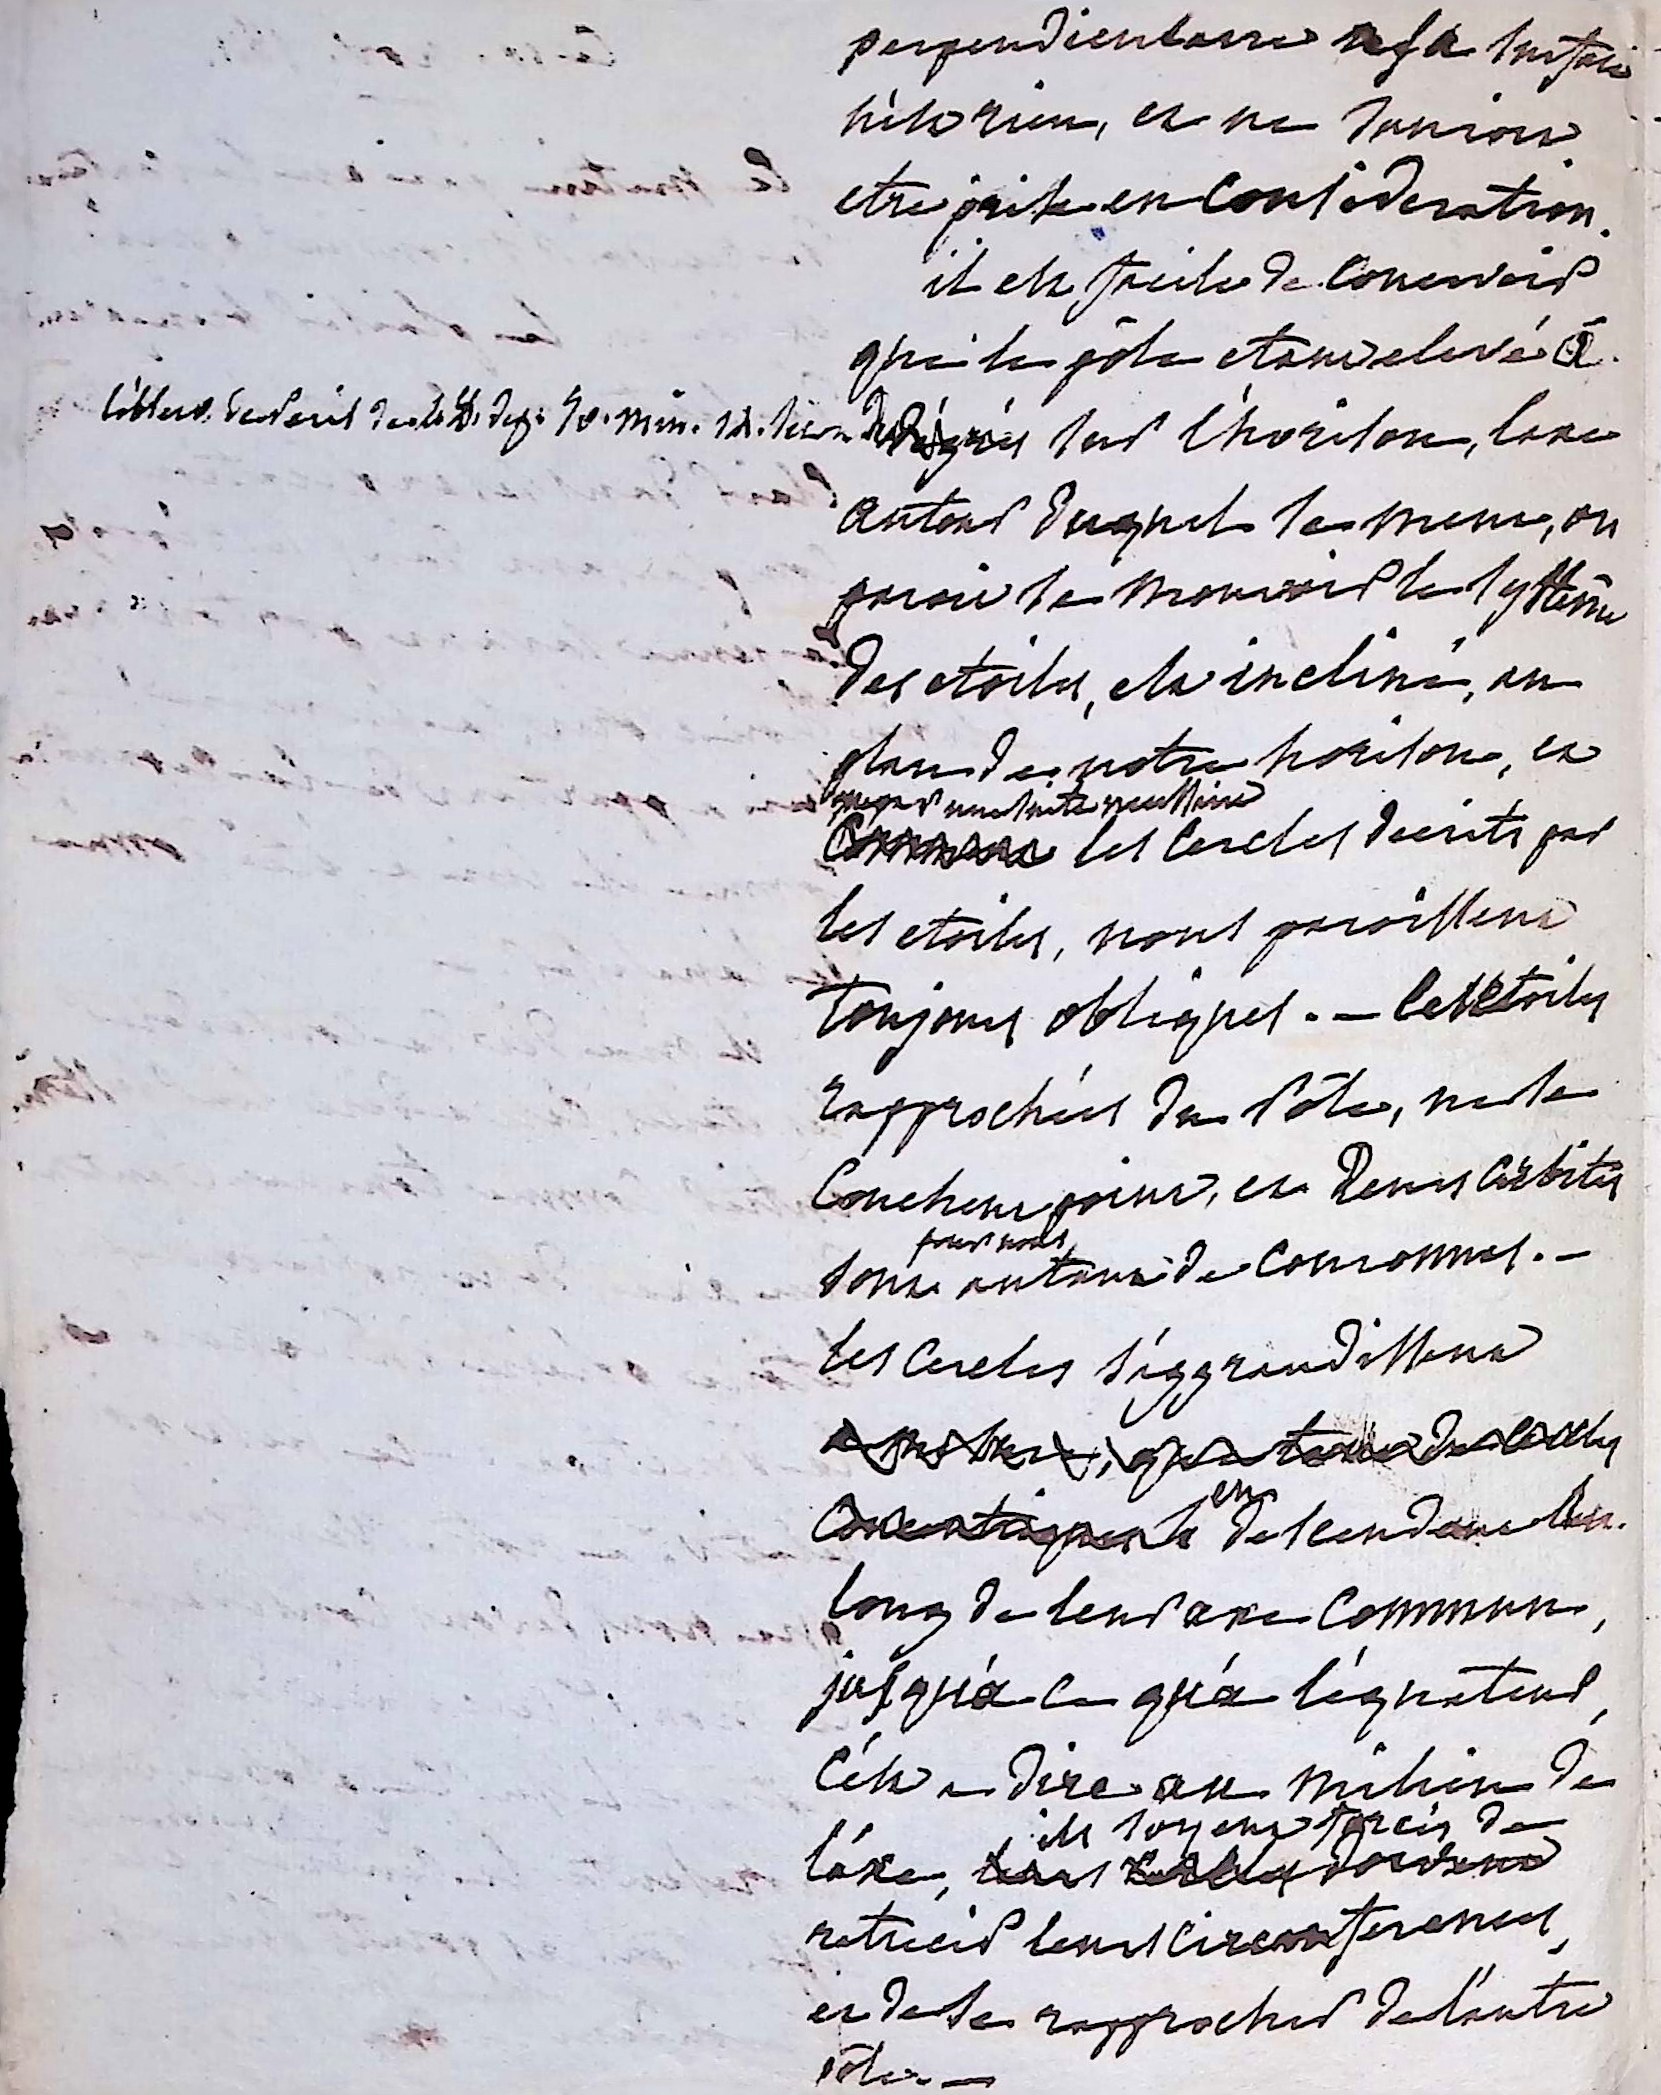 perpendiculaire a sa surface
n'est rien, et ne sauroit
etre prise en consideration.
il est facile de concevoir
que le pôle etant elevé à
l'observ. de Paris de 48. deg. 50. min. 14. secon. degrés sur l'horison, l'axe
autour duquel se meut, ou
paroit se mouvoir le systême
des etoiles, est incliné, au
plan de notre horison, et
que par une suite necessaire
Comme les cercles decrits par
les etoiles, nous paroissent
toujours obliques. — les etoiles
rapprochées du Pôle, ne se
couchent point, et leurs orbites
pour nous
sont autant de couronnes. —
les cercles s'aggrandissent
en
descendant le
long de leur axe commun,
jusqu'à ce qu'à l'équateur,
c'est a dire au milieu de
ils soyent forcés de
l'axe, leurs cercles doivent
retrécir leurs circonferences,
et de se rapprocher de l'autre
pôle. —